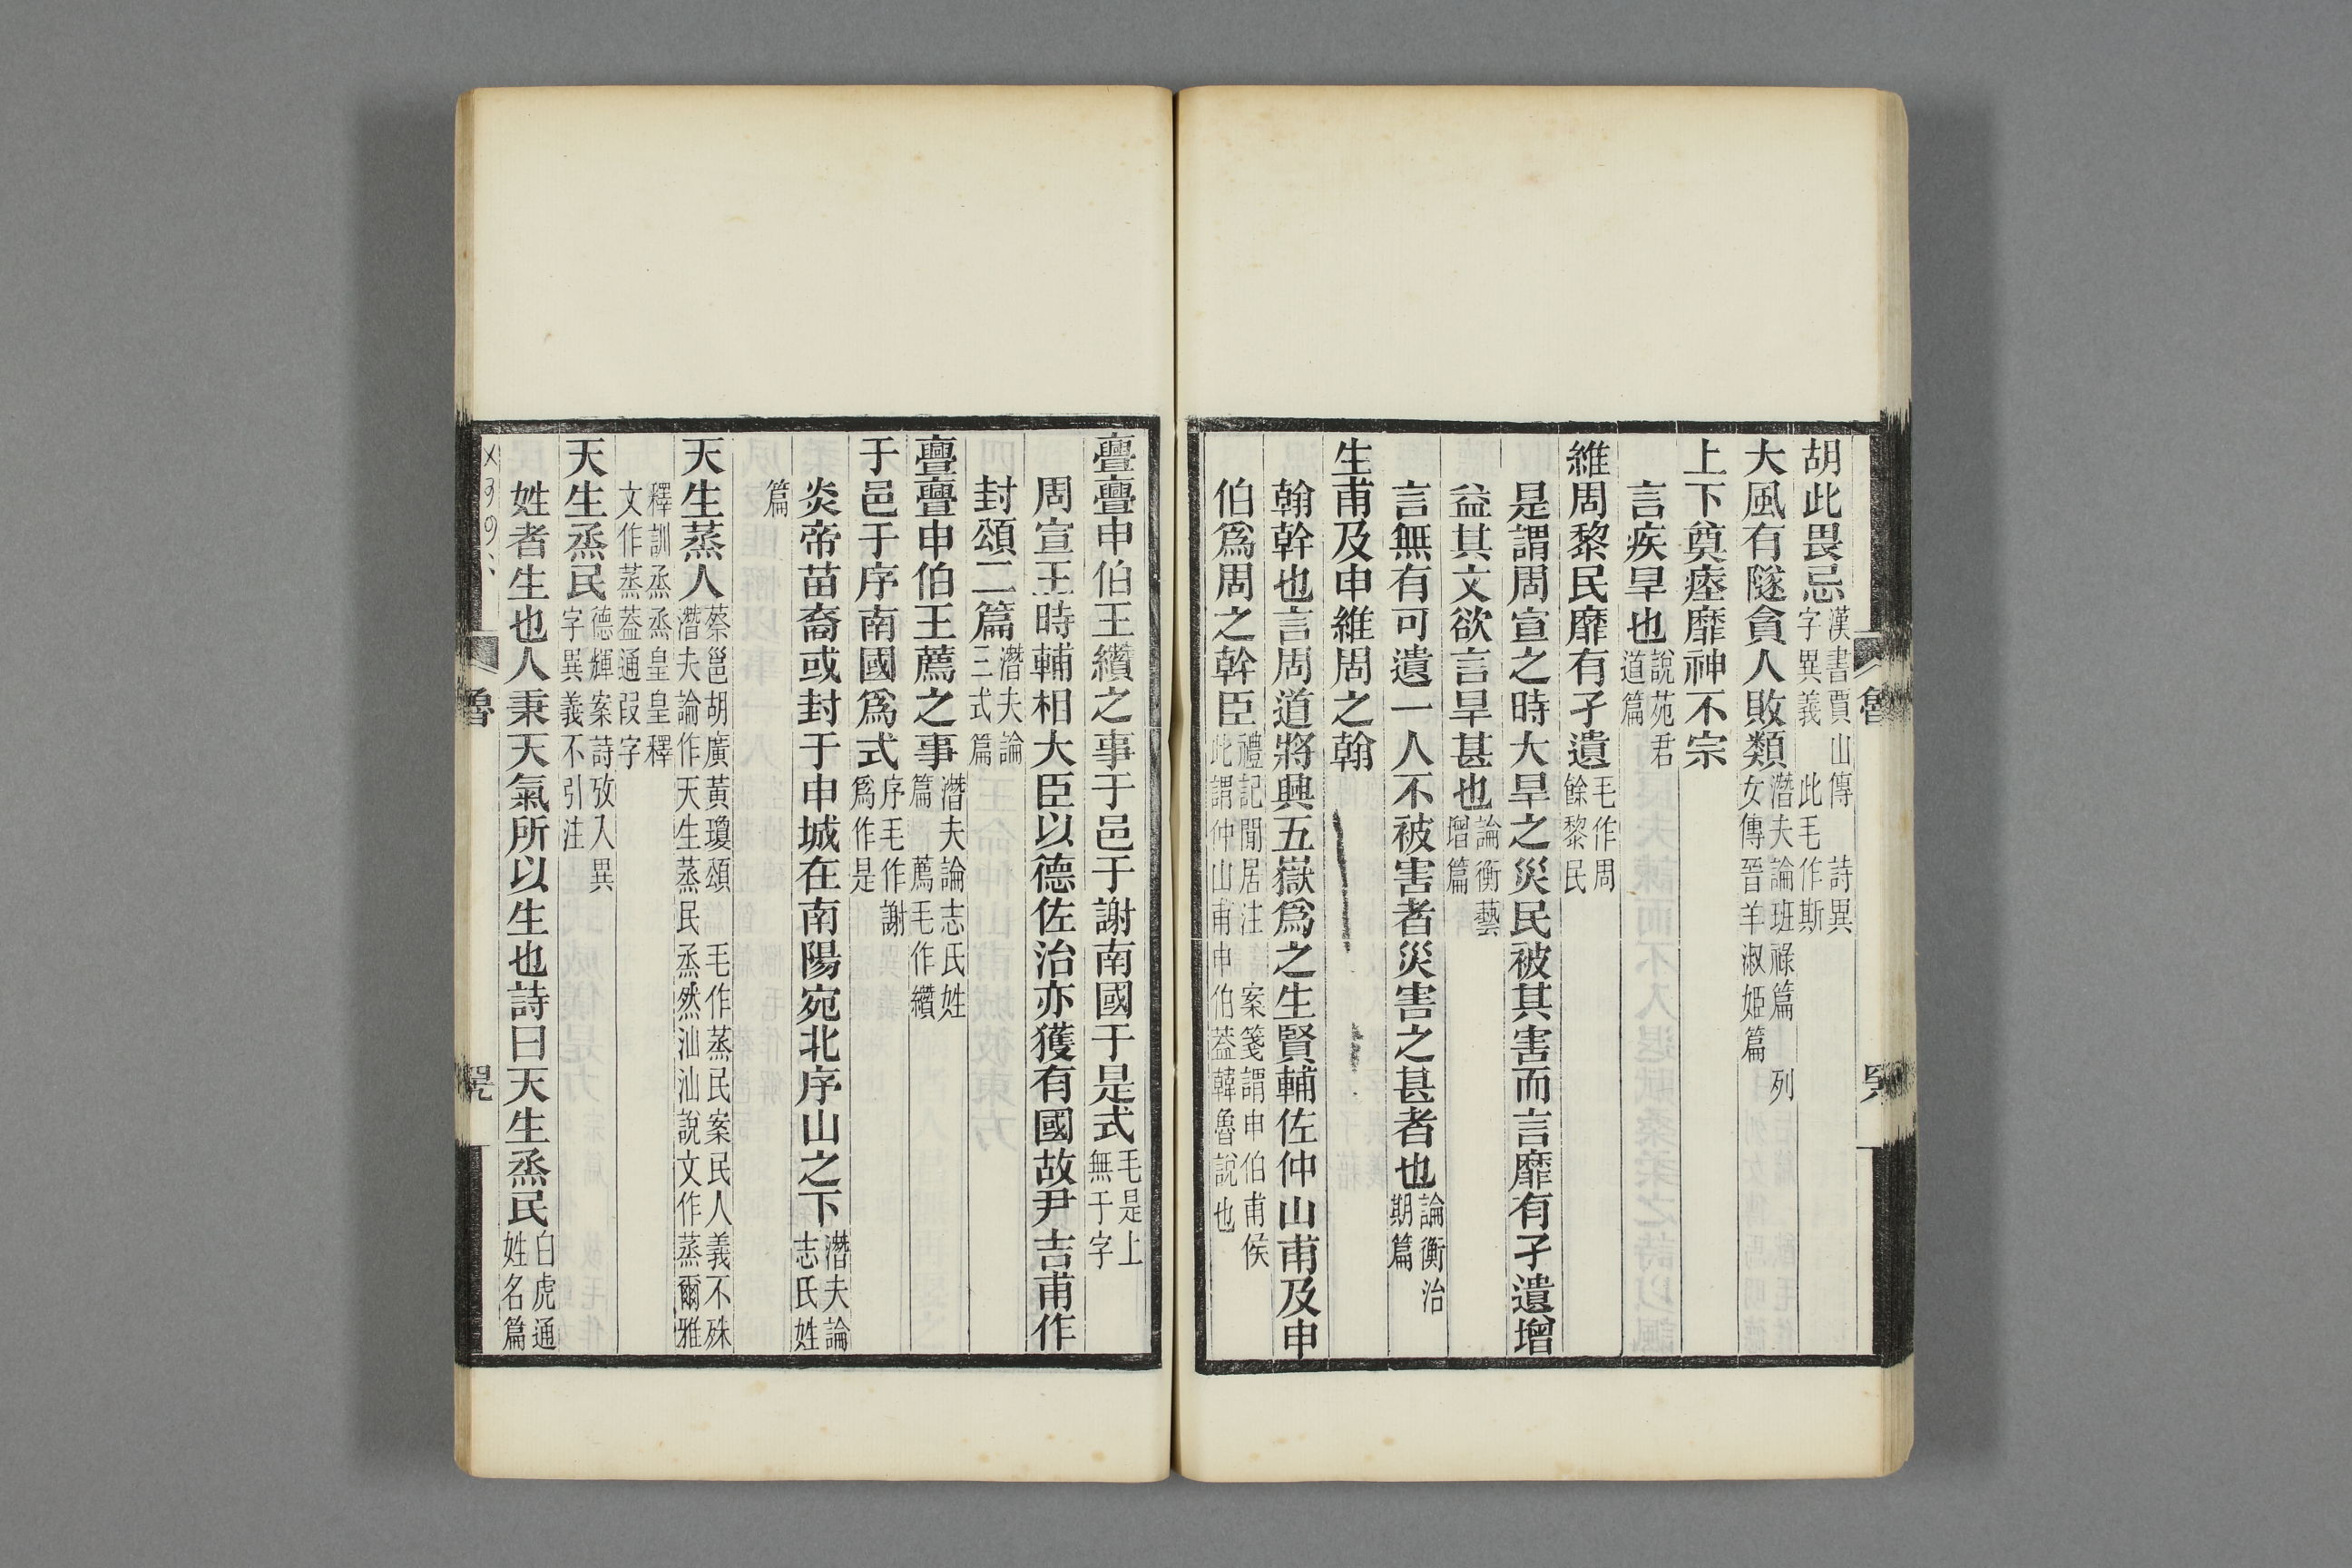 胡此畏忌漢書賈山傳　詩異字異義　此毛作斯
大風有隧貪人敗類潛夫論班祿篇　列女傳晉羊淑姬篇
上下奠瘞靡神不宗
言疾旱也說苑君道篇
維周黎民靡有孑遺毛作周餘黎民
是謂周宣之時大旱之災民被其害而言靡有孑遺增
益其文欲言旱甚也論衡藝增篇
言無有可遺一人不被害者災害之甚者也論衡治期篇
生甫及申維周之翰
翰幹也言周道將興五嶽爲之生賢輔佐仲山甫及申
伯爲周之幹臣禮記閒居注　案箋謂申伯甫侯此謂仲山甫申伯蓋韓魯說也
亹亹申伯王纘之事于邑于謝南國于是式毛是上無于字
周宣王時輔相大臣以德佐治亦獲有國故尹吉甫作
封頌二篇潛夫論三式篇
亹亹申伯王薦之事潛夫論志氏姓篇　薦毛作纘
于邑于序南國爲式序毛作謝爲作是
炎帝苗裔或封于申城在南陽宛北序山之下潛夫論志氏姓
篇
天生蒸人蔡邕胡廣黃瓊頌　毛作蒸民案民人義不殊潛夫論作天生蒸民　烝然汕汕說文作蒸爾雅
釋訓烝烝皇皇釋文作蒸蓋通叚字
天生烝民德輝案詩攷入異字異義不引注
姓者生也人秉天氣所以生也詩曰天生烝民白虎通姓名篇
魯
魯